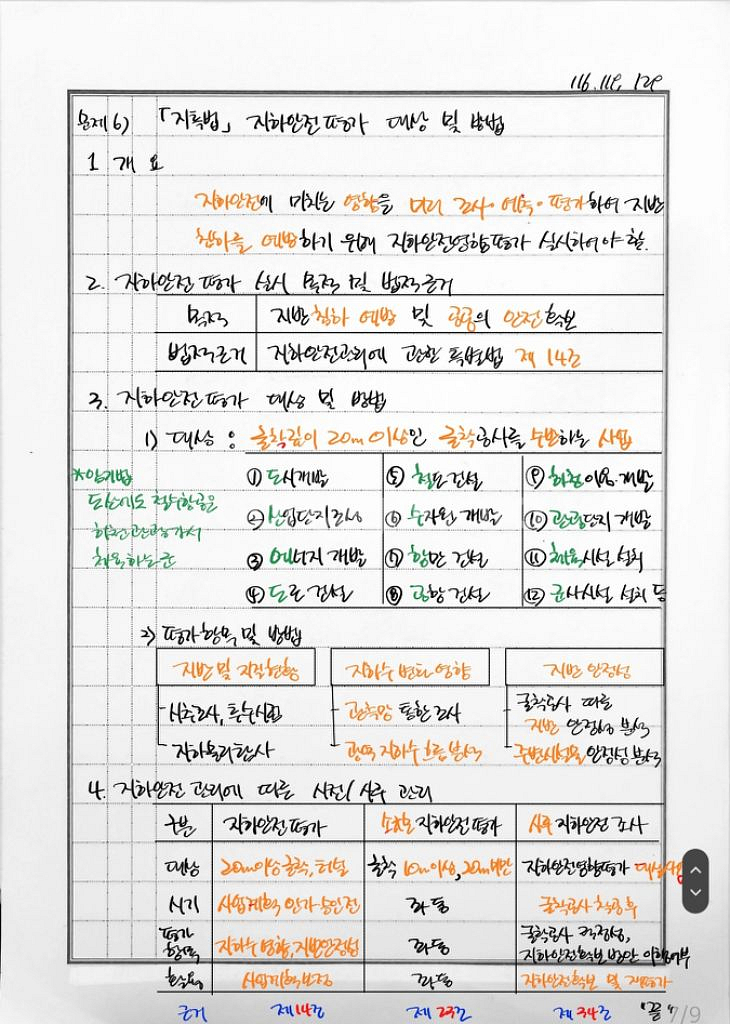 116. 118, 129
문제 6) 「지특법」 지하안전평가 대상 및 방법
1 개 요
지하안전에 미치는 영향을 미리 조사·예측·평가하여 지반
침하를 예방하기 위해 지하안전영향평가 실시하여야 함.
2. 지하안전평가 실시 목적 및 법적근거
목적 지반침하 예방 및 공공의 안전확보
법적근거 지하안전관리에 관한 특별법 제 14조
3. 지하안전평가 대상 및 방법
1) 대상 : 굴착깊이 20m 이상인 굴착공사를 수반하는 사업
*암기법
도산에도 철수항공은
하천관광가서
체육하는군
① 도시개발 ⑤ 철도건설 ⑨ 하천이용·개발
② 산업단지조성 ⑥ 수자원 개발 ⑩ 관광단지 개발
③ 에너지 개발 ⑦ 항만 건설 ⑪ 체육시설 설치
④ 도로 건설 ⑧ 공항 건설 ⑫ 군사시설 설치 등
2) 평가항목 및 방법
지반 및 지질현황 지하수 변화 영향 지반 안정성
시추조사, 투수시험 관측망 통한 조사 굴착공사 따른
지반 안정성 분석
지하물리탐사 광역 지하수 흐름 분석 주변시설물 안정성 분석
4. 지하안전 관리에 따른 사전/사후 관리
구분 지하안전평가 소규모 지하안전평가 사후 지하안전 조사
대상 20m이상굴착, 터널 굴착 10m이상, 20m미만 지하안전영향평가 대상사업
시기 사업계획 인가·승인전 좌동 굴착공사 착공후
평가
항목 지하수 영향, 지반안정성 좌동 굴착공사 적정성,
지하안전확보 방안 이행여부
활용 사업계획보정 좌동 지하안전확보 및 재평가
근거 제14조 제23조 제34조 "끝"
7/9